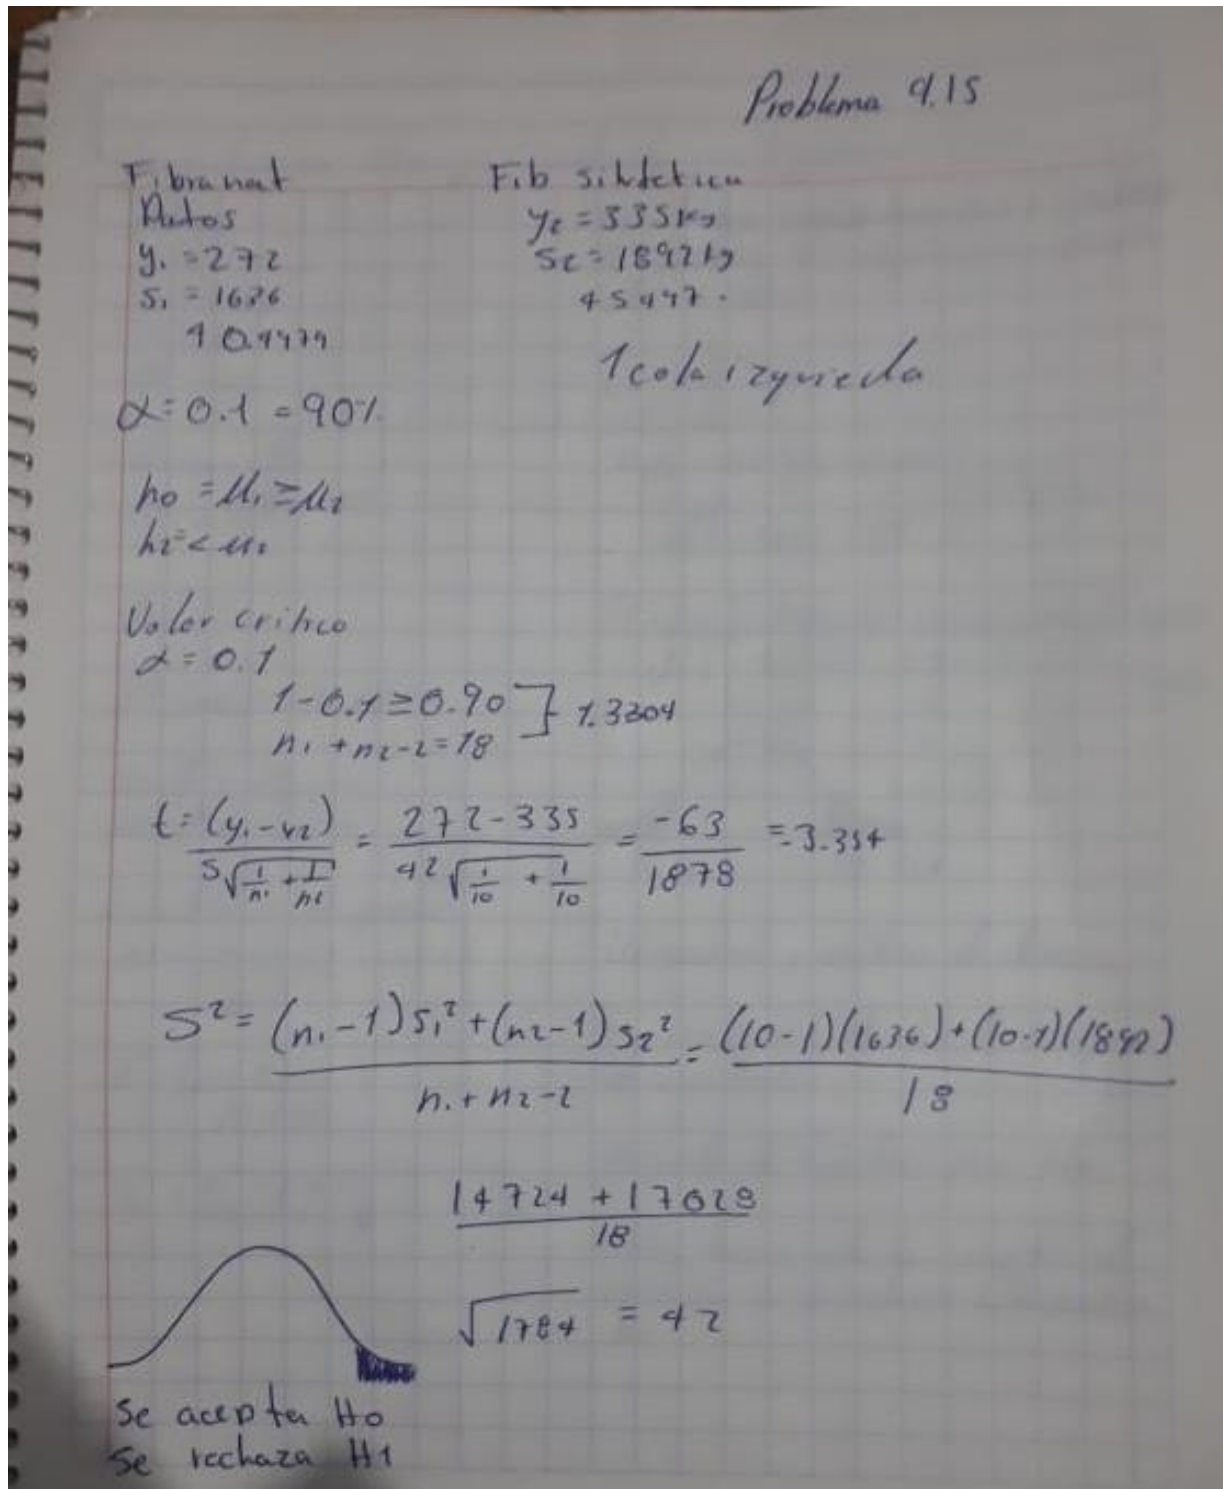 Problema 9.15
Fibra nat
Datos
y₁ = 272
s₁ = 1636
40.4474
Fib sintetica
y₂ = 335 kg
s₂ = 1892 kg
1 cola izquierda
α = 0.1 = 90%
ho = μ₁ ≥ μ₂
Valor critico
α = 0.1
1 - 0.1 ≥ 0.90 ] 1.3304
n₁ + n₂ - 2 = 18
t = (y₁ - y₂) / S√(1/n₁ + 1/n₂) = 272 - 335 / 42√(1/10 + 1/10) = -63 / 1878 = -3.354
S² = (n₁ - 1)s₁² + (n₂ - 1)s₂² / n₁ + n₂ - 2 = (10 - 1)(1636) + (10 - 1)(1892) / 18
14724 + 17028 / 18
√1784 = 42
Se acepta Ho
Se rechaza H1